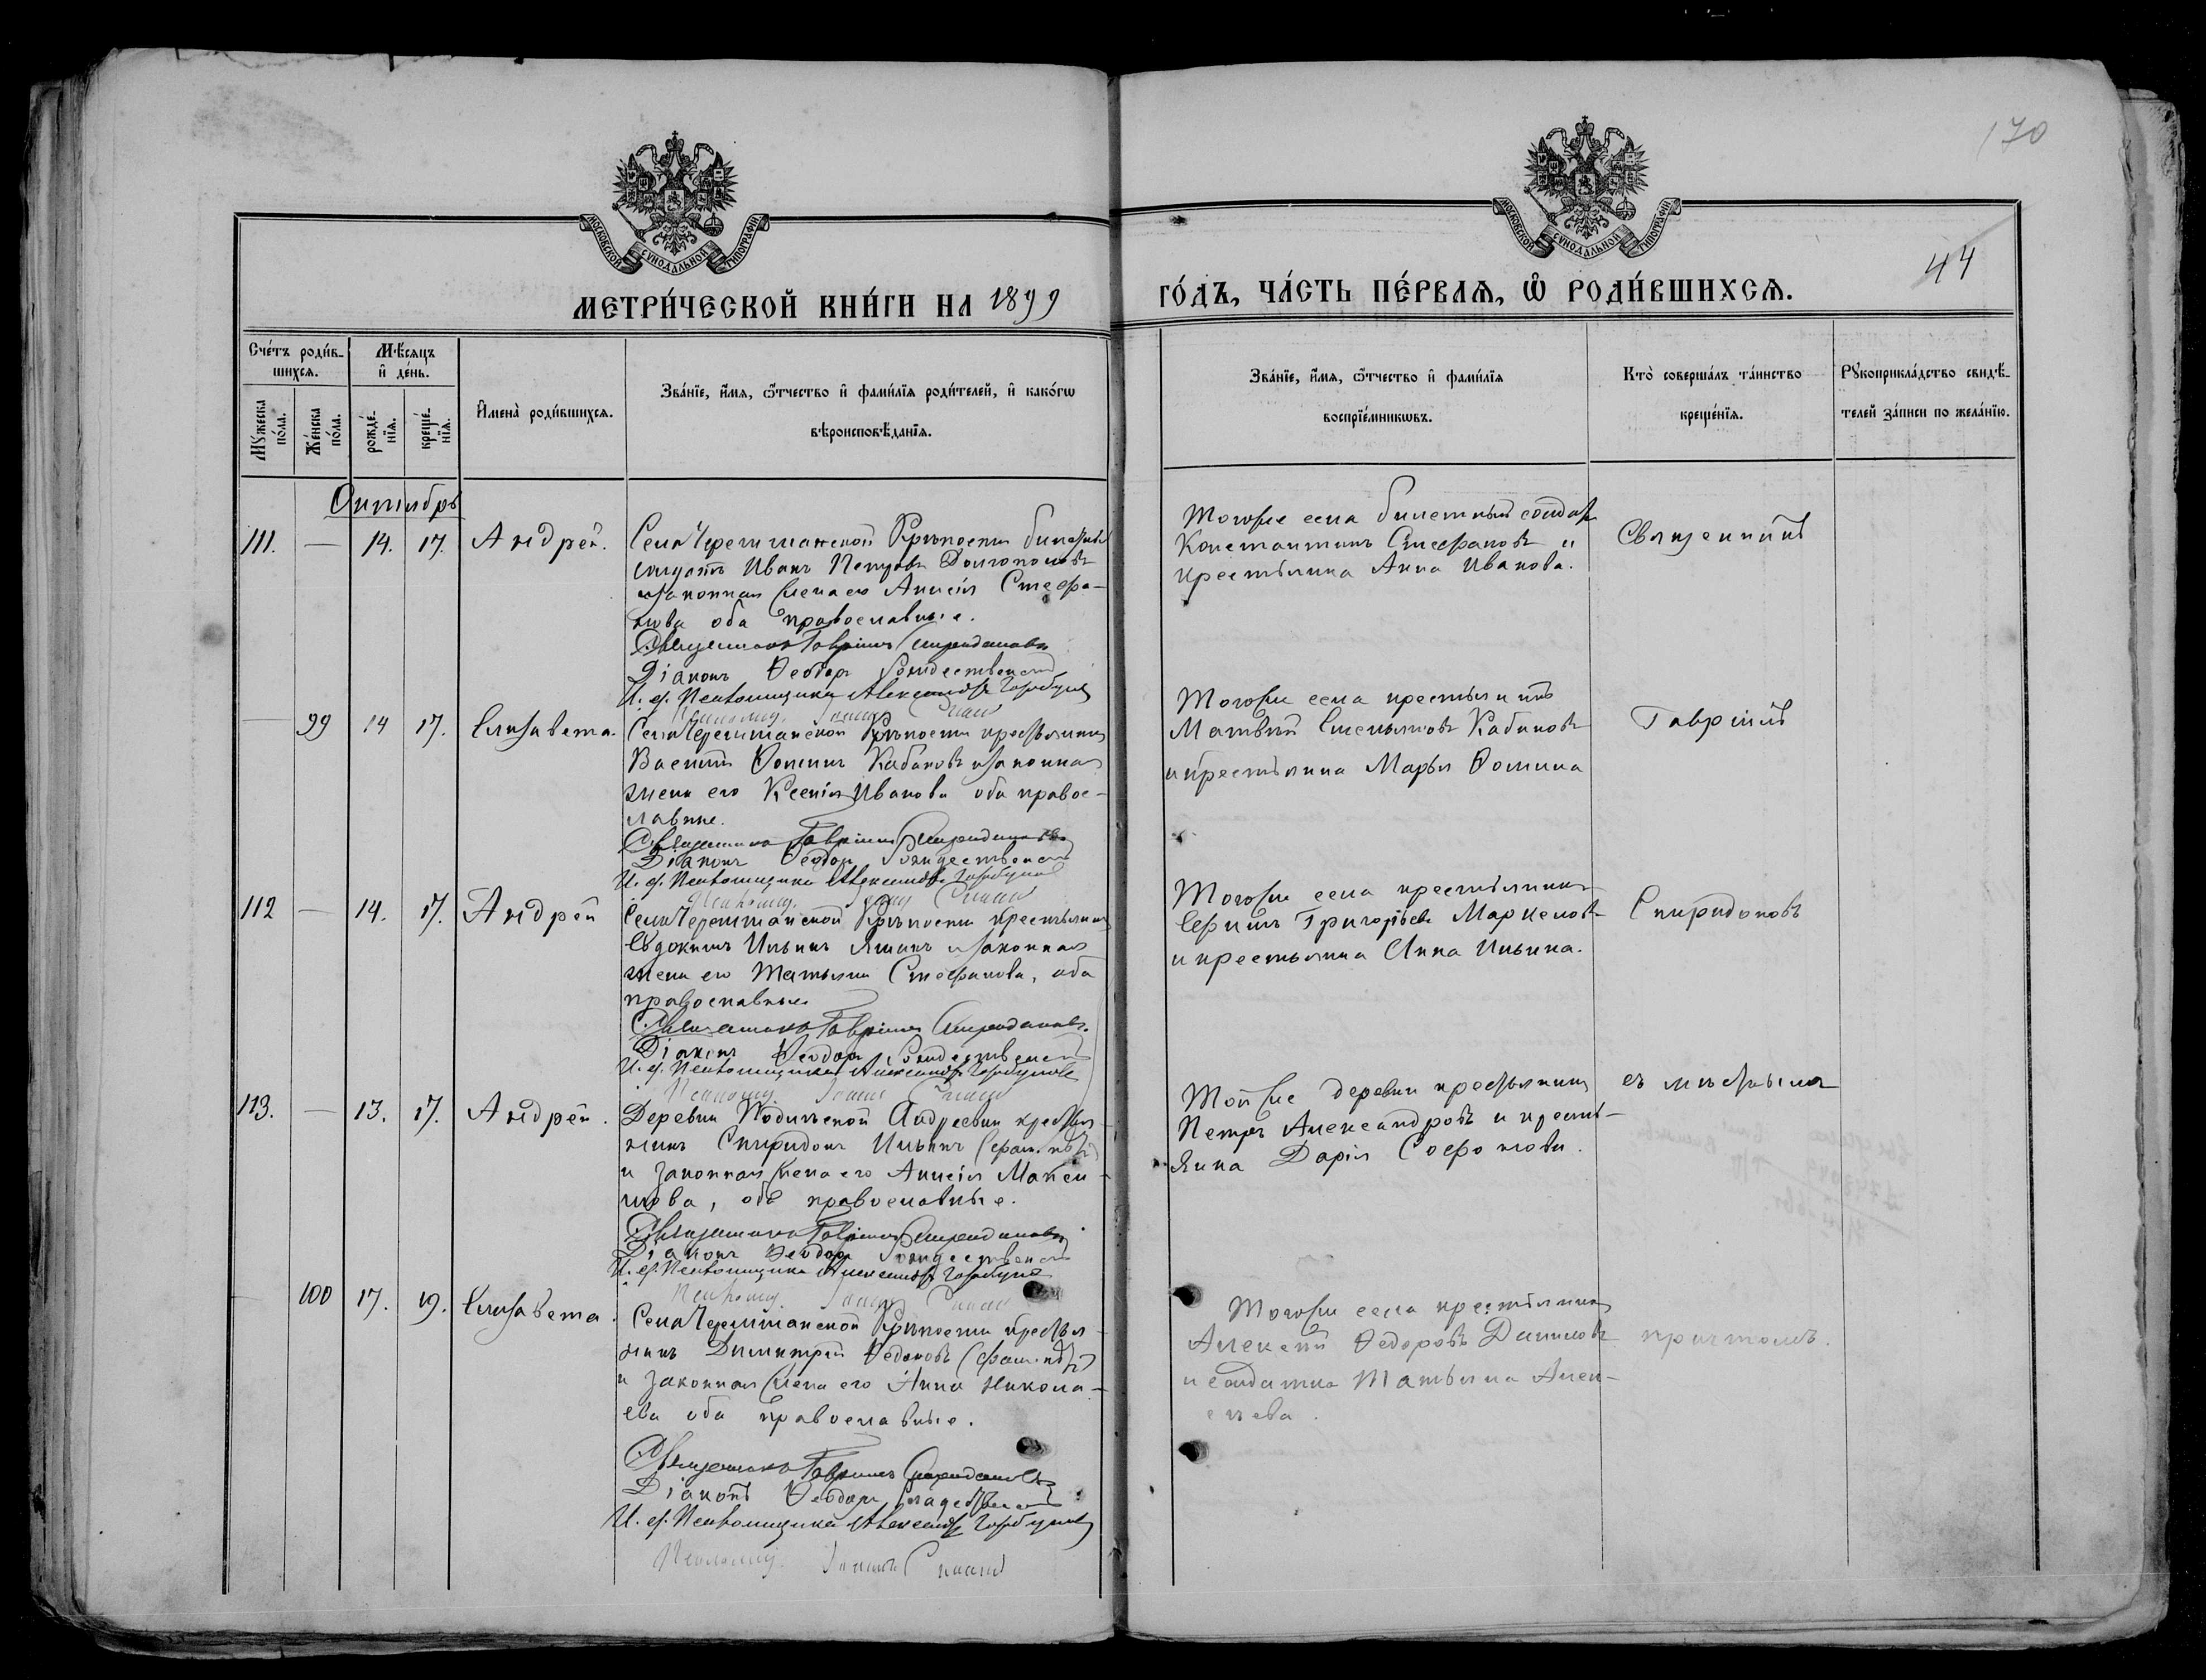 170
МОСКОВСКОЙ СУНОДАЛЬНОЙ ТИПОГРАФІИ
МОСКОВСКОЙ СУНОДАЛЬНОЙ ТИПОГРАФІИ
44
МЕТРИ́ЧЕСКОЙ КНИ́ГИ НА 1899
ГО́ДЪ, ЧА́СТЬ ПЕ́РВАѦ, Ѡ РОДИ́ВШИХСѦ.
Сче́тъ роди́в-
шихсѧ.
Мѣ́сѧцъ
и̂ де́нь.
Мꙋ́жеска
по́ла.
Же́нска
по́ла.
рожде́-
нїѧ.
креще́-
нїѧ.
И̂мена̀ роди́вшихсѧ.
Зва́нїе, и҆́мѧ, ѻ҆́тчество и҆ фами́лїѧ роди́телей, и҆ како́гѡ
вѣроисповѣ́данїѧ.
Зва́нїе, и҆́мѧ, ѻ҆́тчество и҆ фами́лїѧ
воспрїе́мникѡвъ.
Кто̀ соверша́лъ та́инство
креще́нїѧ.
Рꙋкоприкла́дство свидѣ́-
телей за́писи по жела́нїю.
Октябрь
111. — 14. 17. Андрей.
Села Черемшанской Крѣпости билетный
солдатъ Иванъ Петровъ Долгополовъ
и законная жена его Анисія Стефа-
нова оба православные.
Священникъ Гавріилъ Спиридоновъ
Діаконъ Ѳеодоръ Рождественскій
И. д. Псаломщика Александръ Горбуновъ
Тогоже села билетный солдатъ
Константинъ Стефановъ и
крестьянка Анна Иванова.
Священникъ
— 99 14 17. Елизавета.
Села Черемшанской Крѣпости крестьянинъ
Василій Ѳоминъ Кабановъ и законная
жена его Ксенія Иванова оба правос-
лавные.
Священникъ Гавріилъ Спиридоновъ
Діаконъ Ѳеодоръ Рождественскій
И. д. Псаломщика Александръ Горбуновъ
Тогоже села крестьянинъ
Матвѣй Емельяновъ Кабановъ
и крестьянка Марья Ѳомина
Гавріилъ
112 — 14. 17. Андрей
Села Черемшанской Крѣпости крестьянинъ
Евдокимъ Ильинъ Яшинъ и законная
жена его Татьяна Стефанова, оба
православные
Священникъ Гавріилъ Спиридоновъ.
Діаконъ Ѳеодоръ Рождественскій
И. д. Псаломщика Александръ Горбуновъ
Тогоже села крестьянинъ
Ефимъ Григорьевъ Маркеловъ
и крестьянка Анна Ильина.
Спиридоновъ
113. — 13. 17. Андрей.
Деревни Андреевки крестья-
нинъ Спиридонъ Ильинъ (фам. нѣтъ)
и законная жена его Анисія Макси-
мова, оба православные.
Священникъ Гавріилъ Спиридоновъ
Діаконъ Ѳеодоръ Рождественскій
И. д. Псаломщика Александръ Горбуновъ
Той же деревни крестьянинъ
Петръ Александровъ и кресть-
янка Дарія Софонова.
съ мѣстнымъ
— 100 17. 19. Елизавета.
Села Черемшанской Крѣпости крестья-
нинъ Димитрій Ѳедоровъ (фам. нѣтъ)
и законная жена его Анна Никола-
ева оба православные.
Священникъ Гавріилъ Спиридоновъ
Діаконъ Ѳеодоръ Рождественскій
И. д. Псаломщика Александръ Горбуновъ
Псаломщ.
Тогоже села крестьянинъ
Алексѣй Ѳедоровъ Даниловъ
и солдатка Татьяна Алек-
сѣева.
причтомъ.